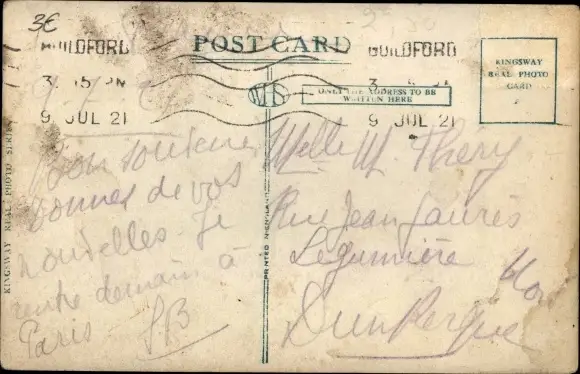 3€
GUILDFORD
3. 15 PM
9 JUL 21
POST CARD
GUILDFORD
9 JUL 21
KINGSWAY
REAL PHOTO
CARD
WHS
ONLY THE ADDRESS TO BE
WRITTEN HERE
KINGSWAY REAL PHOTO SERIES
PRINTED IN ENGLAND
Bon souvenir
Donnez de vos
nouvelles. Je
rentre demain à
Paris
Melle M. Théry
Rue Jean Jaurès
Légumière
Dunkerque